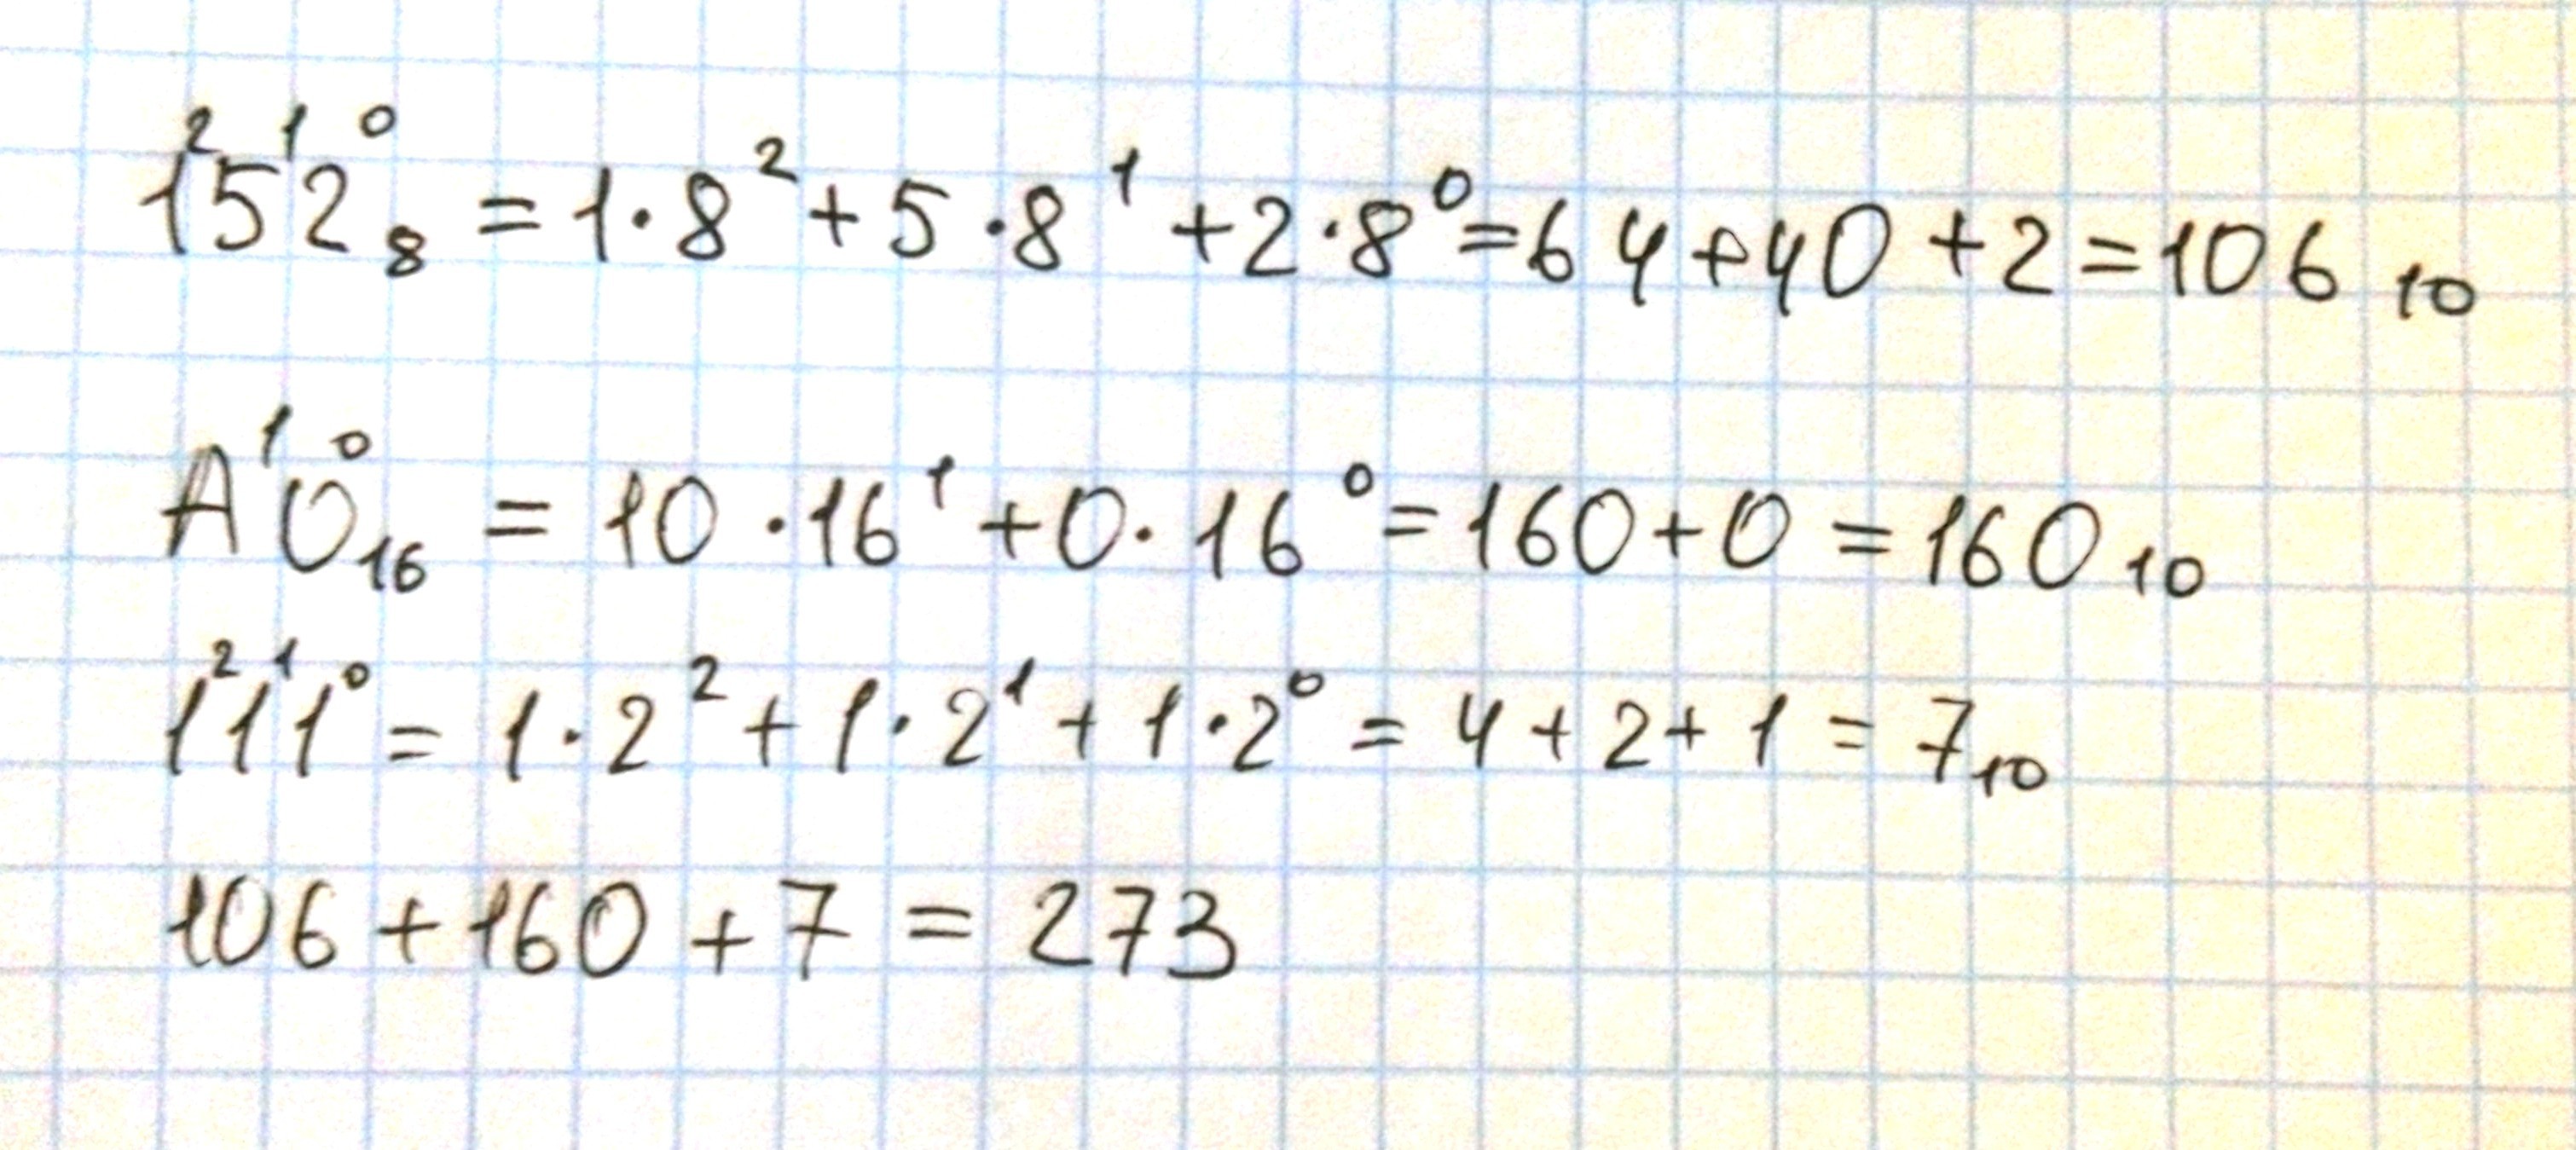 1²5¹2⁰₈ = 1·8² + 5·8¹ + 2·8⁰ = 64 + 40 + 2 = 106₁₀
A¹0⁰₁₆ = 10·16¹ + 0·16⁰ = 160 + 0 = 160₁₀
1²1¹1⁰ = 1·2² + 1·2¹ + 1·2⁰ = 4 + 2 + 1 = 7₁₀
106 + 160 + 7 = 273